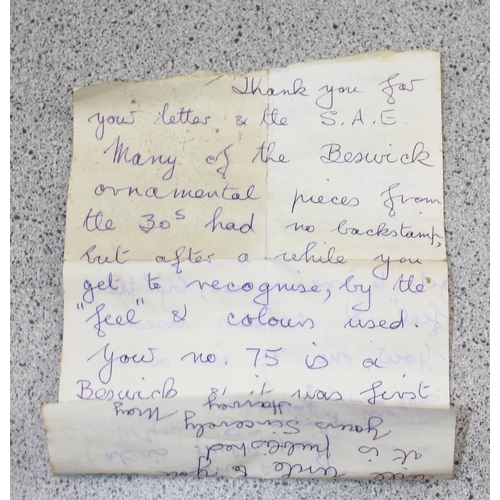 Thank you for
your letter & the S.A.E.
Many of the Beswick
ornamental pieces from
the 30s had no backstamp,
but after a while you
get to recognise, by the
"feel" & colours used.
Your no. 75 is a
Beswick it was first
write to you
it is published.
Yours Sincerely
Harvey May